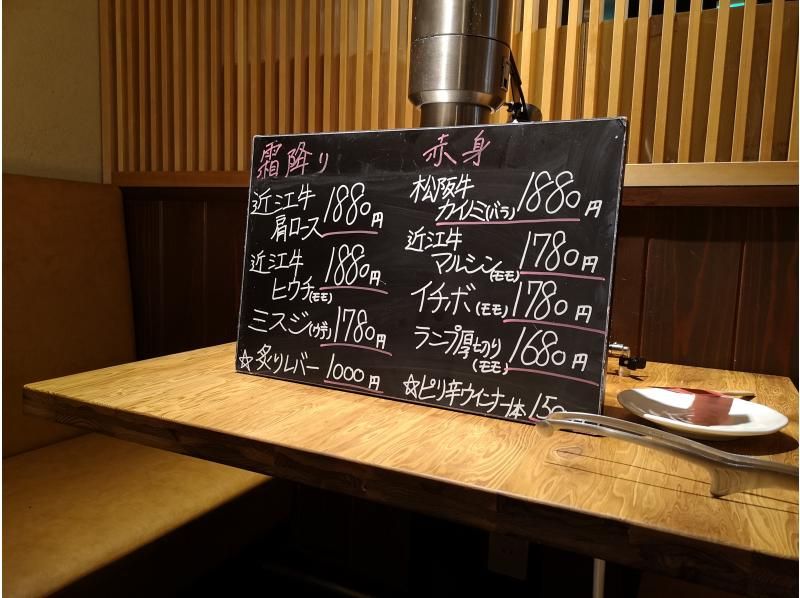 霜降り
近江牛
肩ロース 1880円
近江牛
ヒウチ(モモ) 1880円
ミスジ(ウデ) 1780円
☆炙りレバー 1000円
赤身
松阪牛
カイノミ(バラ) 1880円
近江牛
マルシン(モモ) 1780円
イチボ(モモ) 1780円
ランプ厚切り(モモ) 1680円
☆ピリ辛ウインナー一本 150